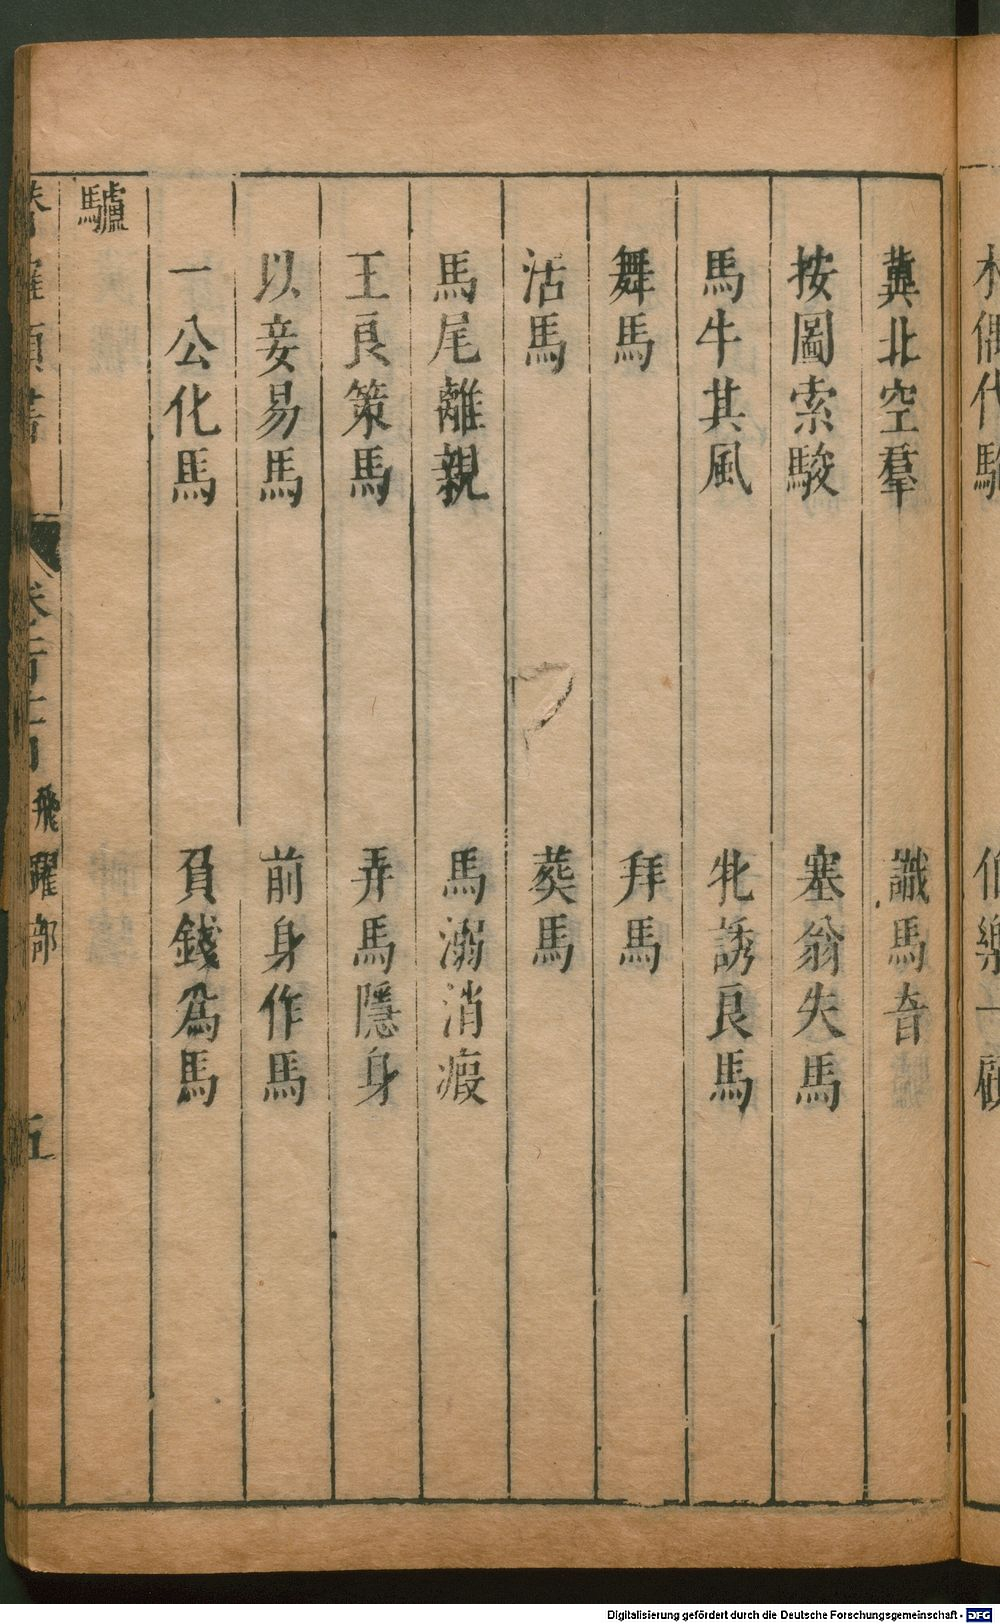 冀北空羣　識馬音
按圖索駿　塞翁失馬
馬牛其風　牝誘良馬
舞馬　拜馬
活馬　葬馬
馬尾離親　馬溺消瘕
王良策馬　弄馬隱身
以妾易馬　前身作馬
一公化馬　負錢為馬
驢
飛躍部
五
Digitalisierung gefördert durch die Deutsche Forschungsgemeinschaft - DFG